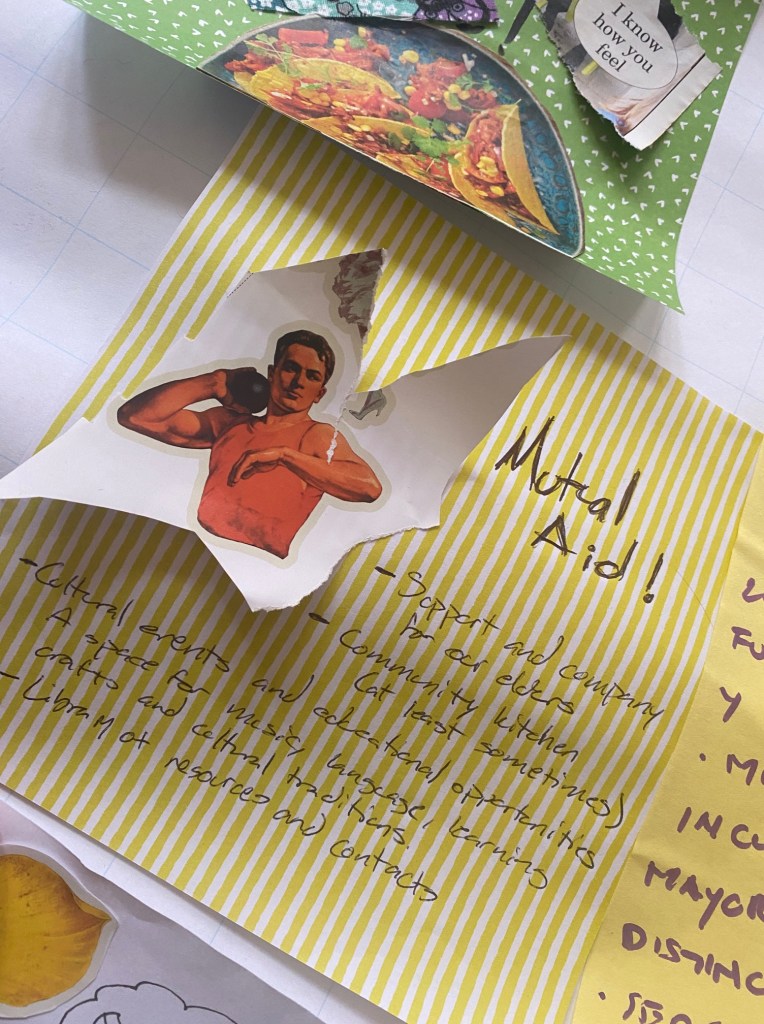 I know
how you
feel
Mutual
Aid!
- Support and company
for our elders
- Community kitchen
(at least sometimes)
- Cultural events and educational opportunities
A space for music, language, learning
crafts and cultural traditions.
- Library of resources and contacts
FU
Y
. M
INCU
MAYOR
DISTINC